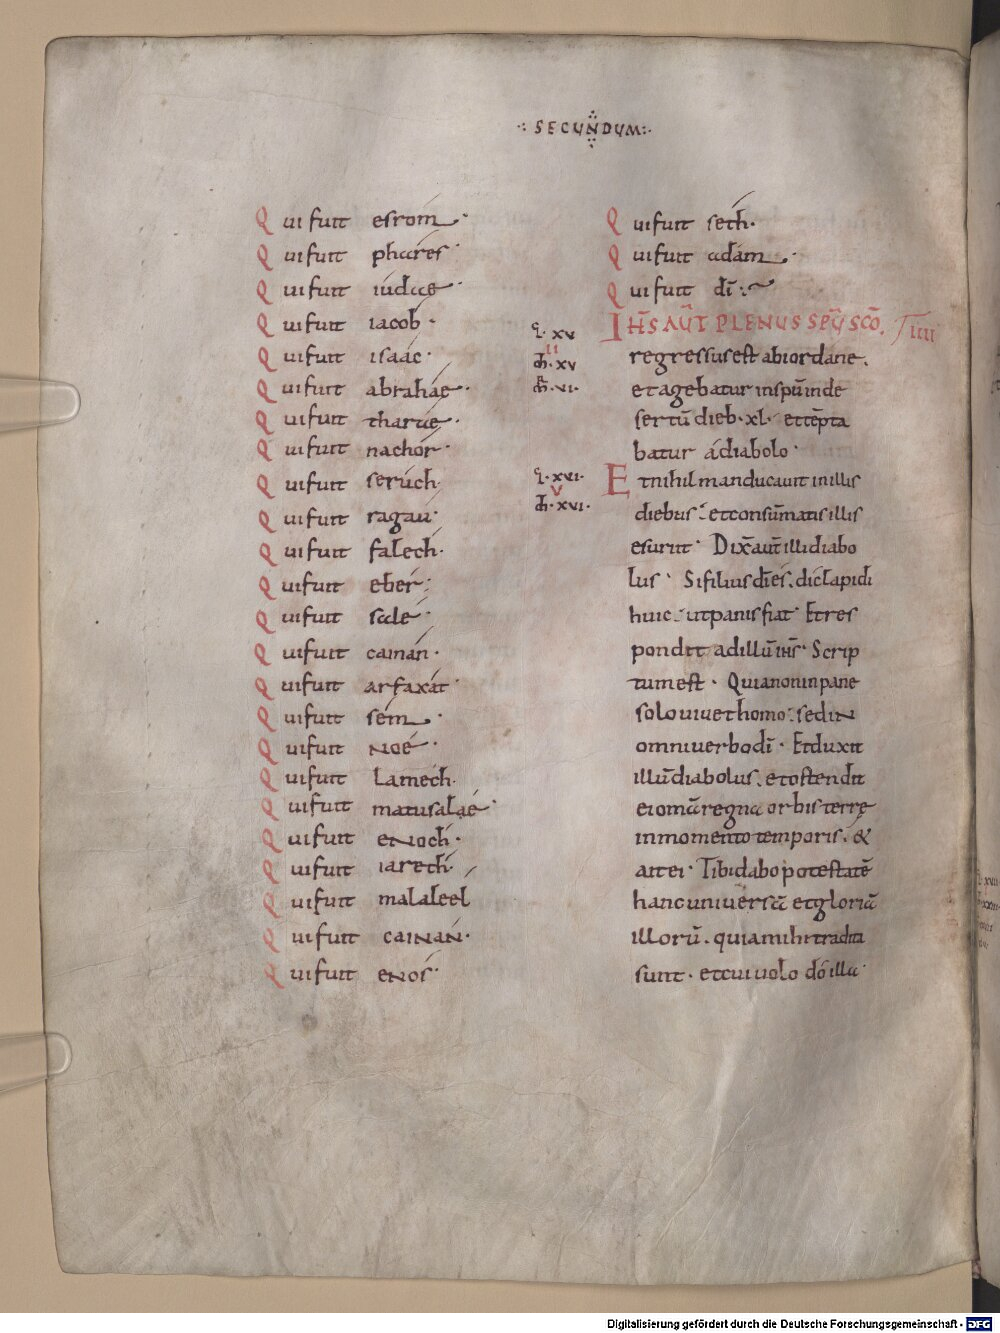 ∴ SECUNDUM ∴
Qui fuit esrom.
Qui fuit phares.
Qui fuit iudae.
Qui fuit iacob.
Qui fuit isaac.
Qui fuit abrahae.
Qui fuit tharae.
Qui fuit nachor.
Qui fuit seruch.
Qui fuit ragau.
Qui fuit falech.
Qui fuit eber.
Qui fuit sale.
Qui fuit cainan.
Qui fuit arfaxat.
Qui fuit sem.
Qui fuit Noe.
Qui fuit Lamech.
Qui fuit matusalae.
Qui fuit eNoch.
Qui fuit iarech.
Qui fuit malaleel
Qui fuit caiNaN.
Qui fuit eNos.
Qui fuit seth.
Qui fuit adam.
Qui fuit dī:
IHS AUT PLENUS SPU SCO. IIII
regressus est ab iordane.
et agebatur in spu in de
sertū dieb. xl. et tēpta
batur a diabolo.
Et nihil manducauit in illis
diebus. et consūmatis illis
esurit. Dix̄ aut illi diabo
lus. Si filius dī es. dic lapidi
huic. ut panis fiat. Et res
pondit ad illū ihs. Scrip
tum est. Quia non in pane
solo uiuet homo. sed iN
omni uerbo dī. Et duxit
illū diabolus. et ostendit
ei om̄a regna orbis terre
in momento temporis. &
ait ei. Tibi dabo potestatē
hanc uniuersā et gloriā
illorū. quia mihi tradita
sunt. et cui uolo do illa.
xv
II
xv
vi.
xvi.
V
xvi.
Digitalisierung gefördert durch die Deutsche Forschungsgemeinschaft - DFG